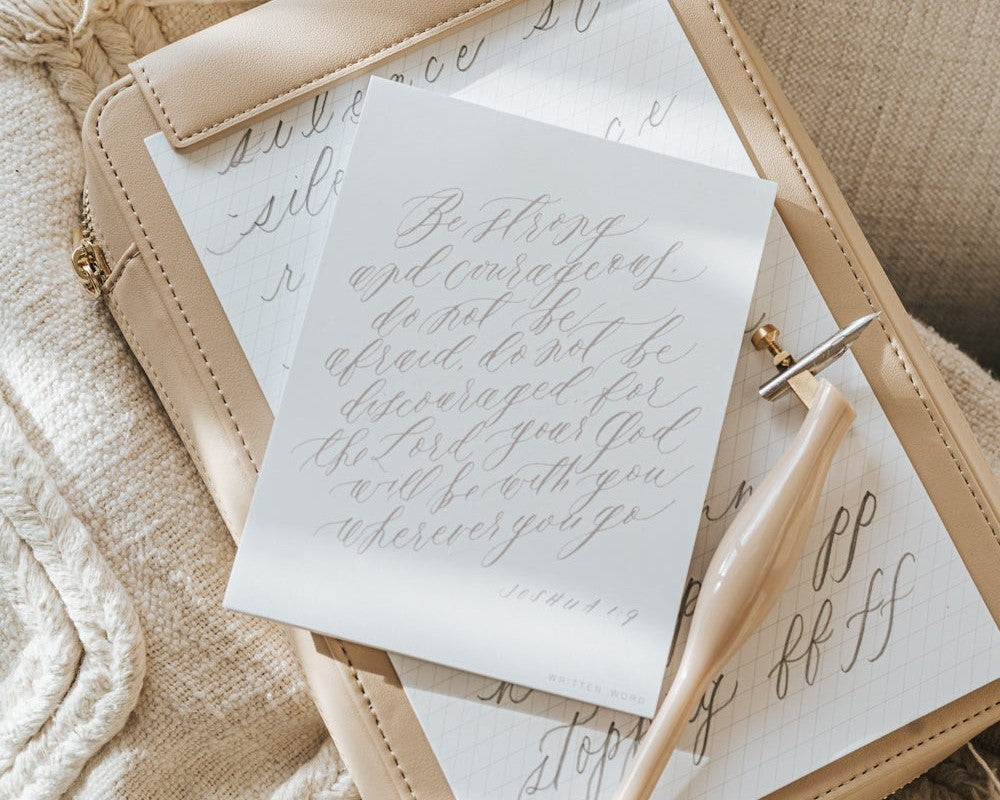 silence st
sile ce
r
Be strong
and courageous.
do not be
afraid, do not be
discouraged. for
the Lord your God
will be with you
wherever you go
JOSHUA 1:9
WRITTEN WORD
pp
ff ff
stopp y